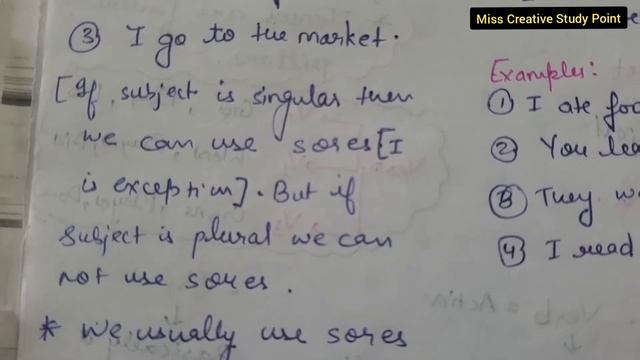 Miss Creative Study Point
③ I go to the market.
[If subject is singular then
we can use s or es [I
is exception]. But if
subject is plural we can
not use s or es.
* We usually use s or es
Examples:
① I ate foo
② You lea
③ They w
④ I read
Verb = Action